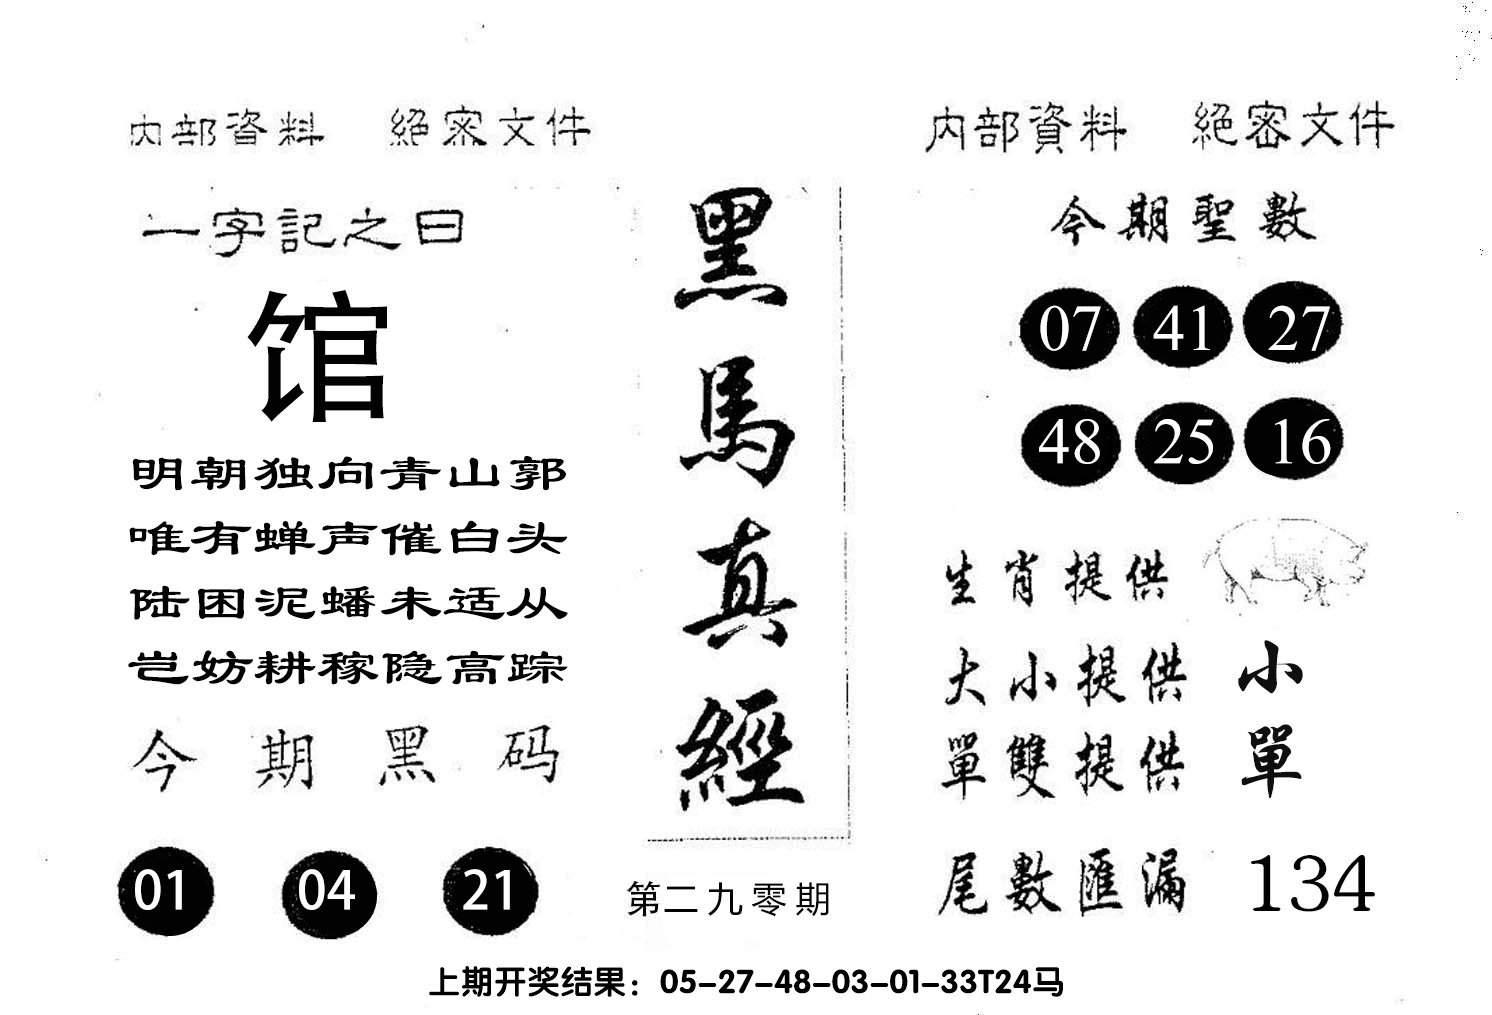 内部資料 絕密文件
一字記之曰
馆
明朝独向青山郭
唯有蝉声催白头
陆困泥蟠未适从
岂妨耕稼隐高踪
今期黑码
01 04 21
黑馬真經
第二九零期
内部資料 絕密文件
今期聖數
07 41 27
48 25 16
生肖提供
大小提供 小
單雙提供 單
尾數匯漏 134
上期开奖结果：05-27-48-03-01-33T24马